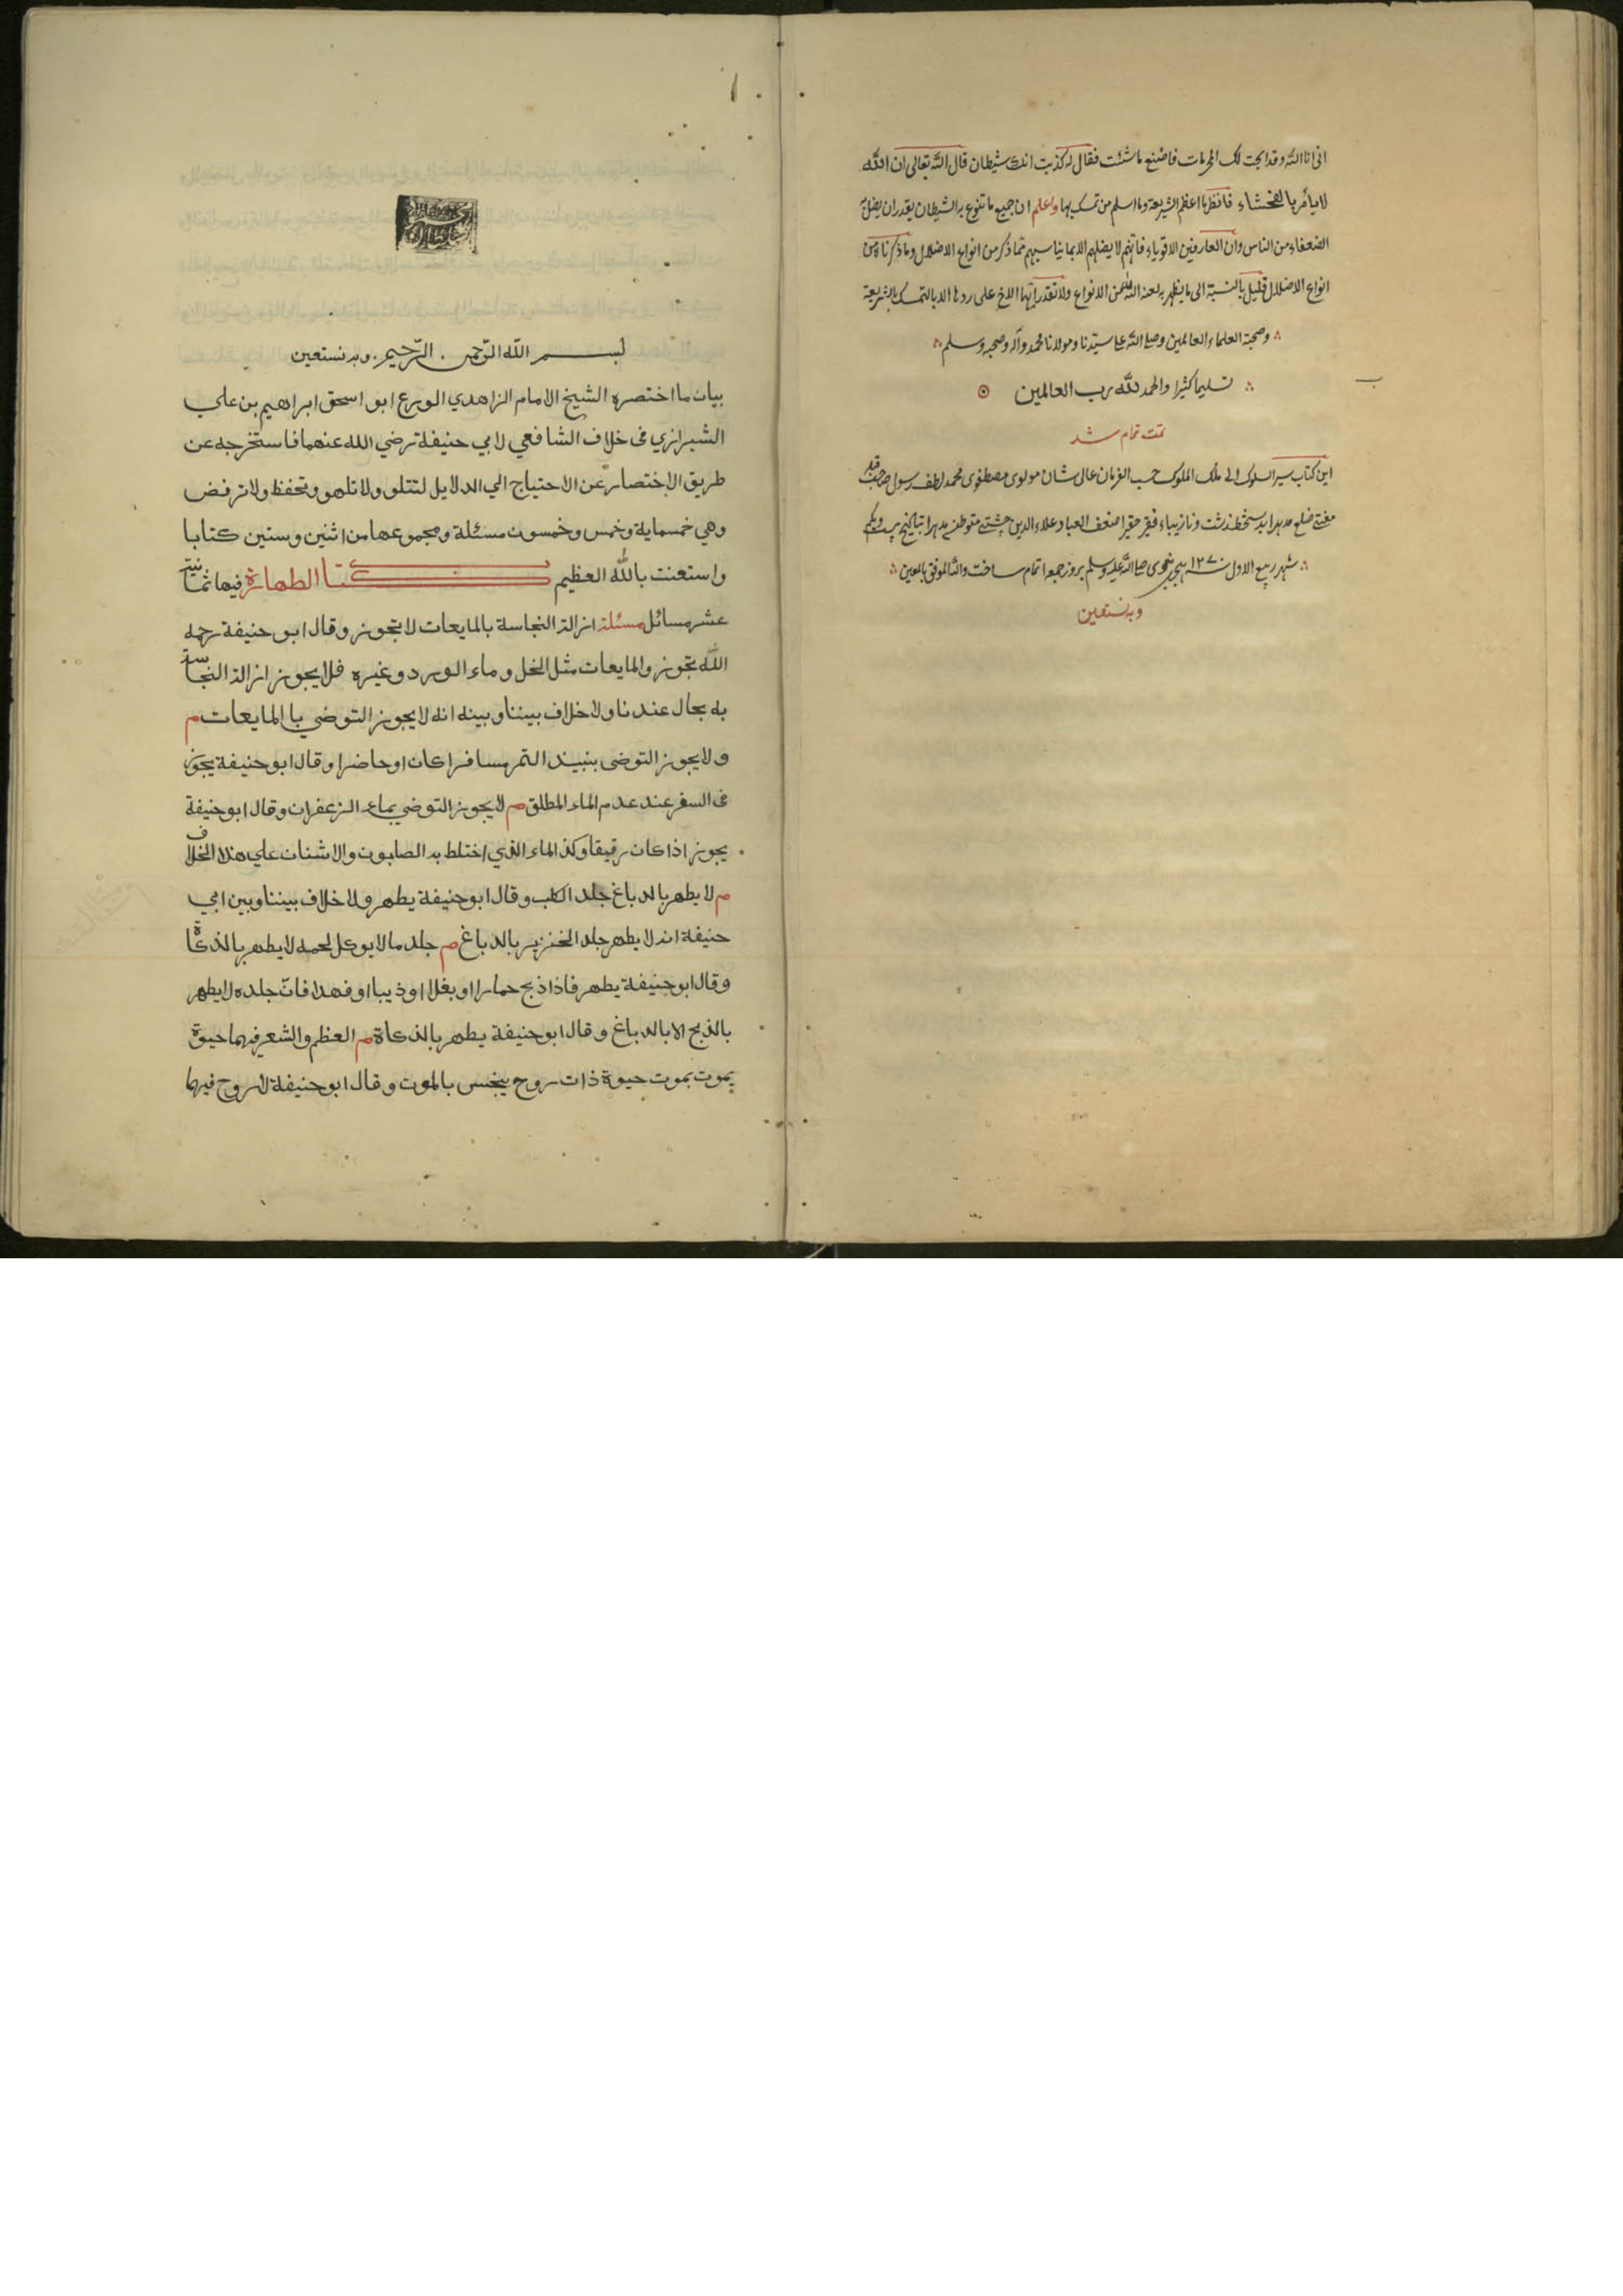 انى انا الله وقد ابحت لك المحرمات فاصنع ما شئت فقال له كذبت انك شيطان قال الله تعالى ان الله
لا يأمر بالفحشاء فانظر ما اعظم الشريعة وما اسلم من تمسك بها واعلم ان جميع ما تنوع به الشيطان يقدر ان يضل به
الضعفاء من الناس وان العارفين الاقوياء فانهم لا يضلهم الا بما يناسبهم مما ذكر من انواع الاضلال وما ذكرناه من
انواع الاضلال قليل بالنسبة الى ما يظهر به لعنه الله من الانواع ولا تقدر ايها الاخ على ردها الا بالتمسك بالشريعة
وصحبة العلماء العالمين وصلى الله على سيدنا ومولانا محمد وآله وصحبه وسلم
تسليما كثيرا والحمد لله رب العالمين
تمت تمام شد
اين كتاب سير السلوك الى ملك الملوك حسب الفرمان عالى شان مولوى مصطفوى محمد لطف رسول صاحب قبله
مفتى ضلع بدستخط زشت ونازيباء فقير حقير اضعف العباد علاء الدين چشتى متوطن
شهر ربيع الاول سنه ١٢٧٠ هجرى نبوى صلى الله عليه وسلم بروز جمعه اتمام ساخت والله الموفق بالمعين
وبه نستعين
١
بسم الله الرحمن الرحيم وبه نستعين
بيان ما اختصره الشيخ الامام الزاهدي الورع ابو اسحق ابراهيم بن علي
الشيرازي فى خلاف الشافعي لابي حنيفة رضي الله عنهما فاستخرجه عن
طريق الاختصار عن الاحتياج الي الدلايل لتتلو ولا تلهو وتحفظ ولا ترفض
وهي خمسماية وخمس وخمسون مسئلة ومجموعها من اثنين وستين كتابا
واستعنت بالله العظيم كتاب الطهارة فيها ثمانية
عشر مسائل مسئلة ازالة النجاسة بالمايعات لا تجوز وقال ابو حنيفة رحمه
الله تجوز والمايعات مثل الخل وماء الورد وغيره فلا يجوز ازالة النجاسة
به بحال عندنا ولا خلاف بيننا وبينه انه لا يجوز التوضي باالمايعات م
ولا يجوز التوضى بنبيذ التمر مسافرا كان او حاضرا وقال ابو حنيفة يجوز
فى السفر عند عدم الماء المطلق م لا يجوز التوضي بماء الزعفران وقال ابو حنيفة
يجوز اذا كان رقيقا وكذ الماء الذي اختلط به الصابون والاشنان علي هذا الخلاف
م لا يطهر بالدباغ جلد الكلب وقال ابو حنيفة يطهر ولا خلاف بيننا وبين ابي
حنيفة انه لا يطهر جلد الخنزير بالدباغ م جلد ما لا يوكل لحمه لا يطهر بالذكاة
وقال ابو حنيفة يطهر فاذا ذبح حمارا او بغلا او ذيبا او فهدا فان جلده لا يطهر
بالذبح الا بالدباغ وقال ابو حنيفة يطهر بالذكاة م العظم والشعر فيهما حيوة
يموت بموت حيوة ذات روح ينجس بالموت وقال ابو حنيفة لا روح فيهما